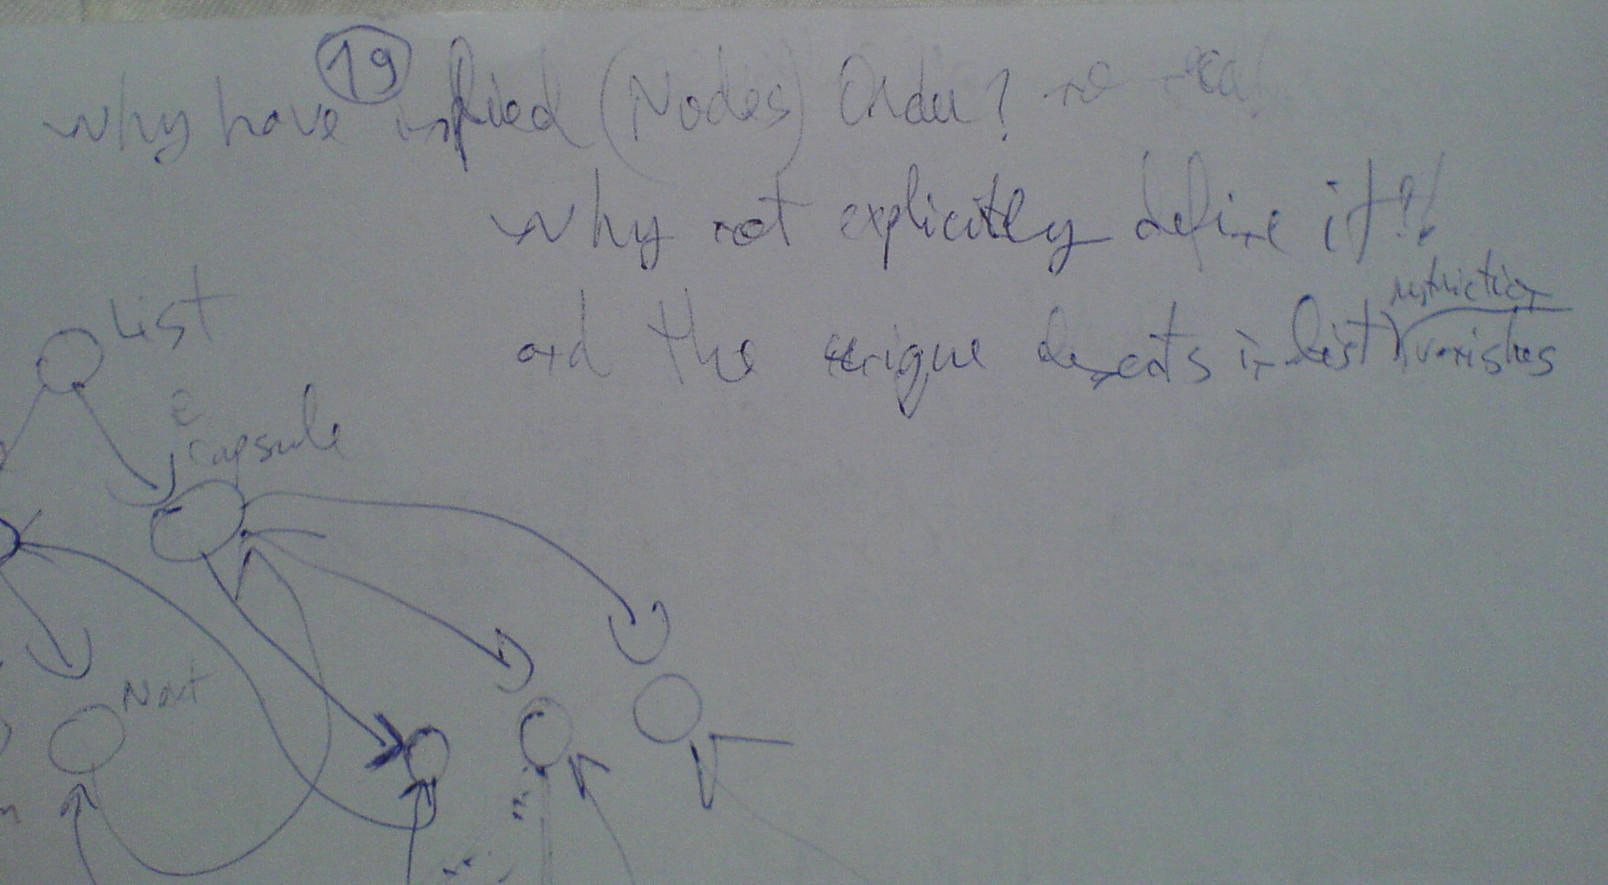 19
why have implied (Nodes) Order? no
why not explicitly define it?!
and the unique elements in list) restriction vanishes
List
e
capsule
Next